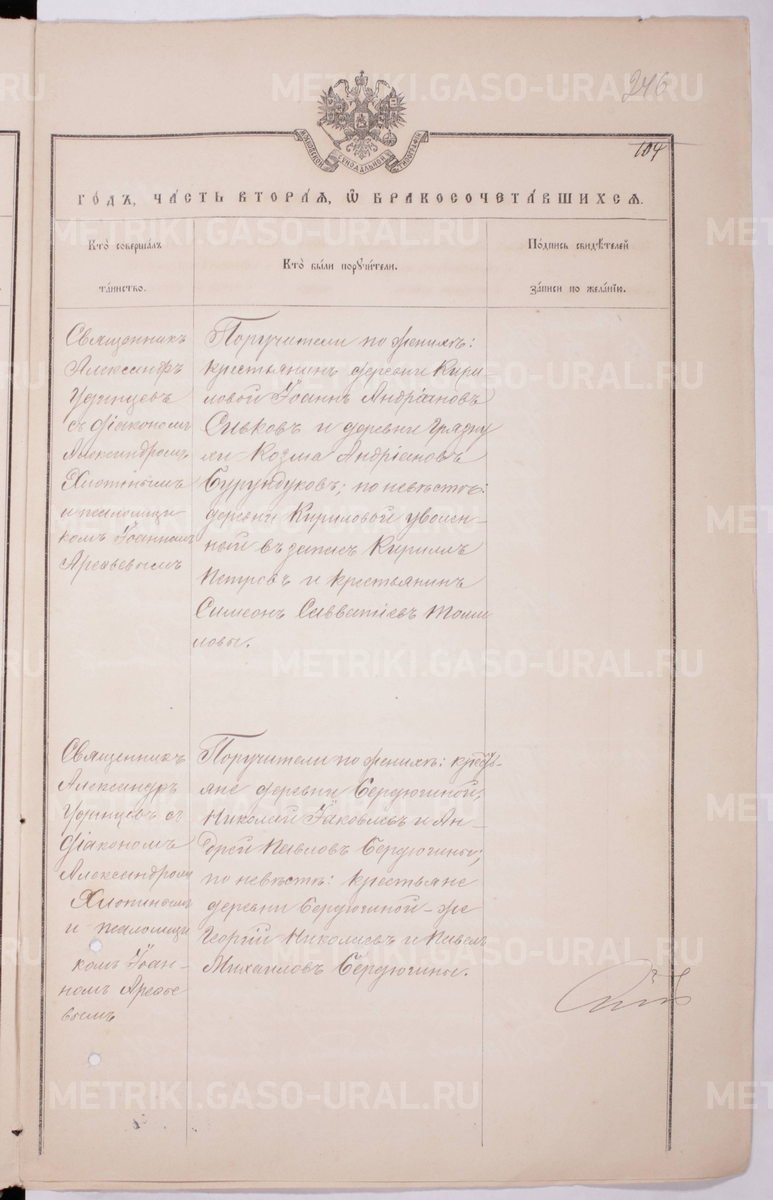 246
104
МОСКОВСКОЙ СѴНОДАЛЬНОЙ ТИПОГРАФІИ
ГО́ДЪ, ЧА́СТЬ ВТОРА́Я, Ѡ҆ БРАКОСОЧЕТА́ВШИХСЯ.
Кто̀ соверша́лъ
та́инство.
Кто̀ бы́ли порꙋчи́тели.
По́дпись свидѣ́телей
за́писи по жела́нїю.
Священникъ
Александръ
Удинцевъ
съ діакономъ
Александромъ
Хлопинымъ
и псаломщи-
комъ Іоанномъ
Арефьевымъ
Поручители по женихѣ:
крестьянинъ деревни Кири
ловой Іоаннъ Андріановъ
Сивковъ и деревни Грязну
хи Козма Андріановъ
Бурундуковъ; по невѣстѣ:
деревни Кириловой уволен-
ной въ запасъ Кириллъ
Петровъ и крестьянинъ
Симеонъ Савватіевъ Томи
ловы.
Священникъ
Александръ
Удинцевъ съ
діакономъ
Александромъ
Хлопинымъ
и псаломщи
комъ Іоан-
номъ Арефье
вымъ
Поручители по женихѣ: кресть-
яне деревни Сердюгиной,
Николай Іаковлевъ и Ан-
дрей Павловъ Сердюгины;
по невѣстѣ: крестьяне
деревни Сердюгиной-же
Георгій Николаевъ и Павелъ
Михаиловъ Сердюгины.
METRIKI.GASO-URAL.RU